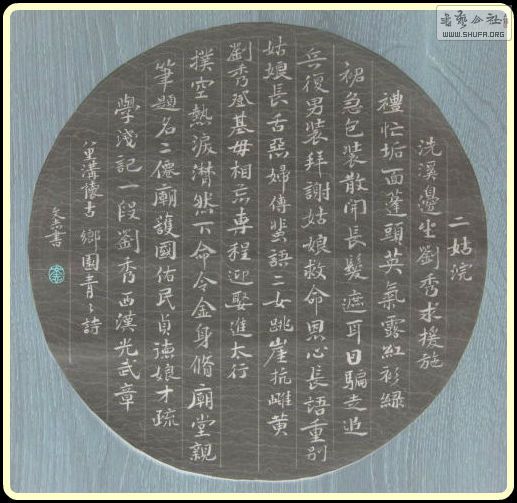 二姑浣
洗溪邊坐劉秀求援施
禮忙垢面蓬頭英氣露紅衫綠
裙急包裝散開長髮遮耳目騙走追
兵復男裝拜謝姑娘救命恩心長語重別
姑娘長舌惡婦傳蜚語二女跳崖抗雌黃
劉秀登基毋相忘專程迎娶進太行
撲空熱淚潸然下命令金身脩廟堂親
筆題名二僊廟護國佑民貞德娘才疏
學淺記一段劉秀西漢光武章
溝懷古 鄉園青々詩
書
公社
WWW.SHUFA.ORG